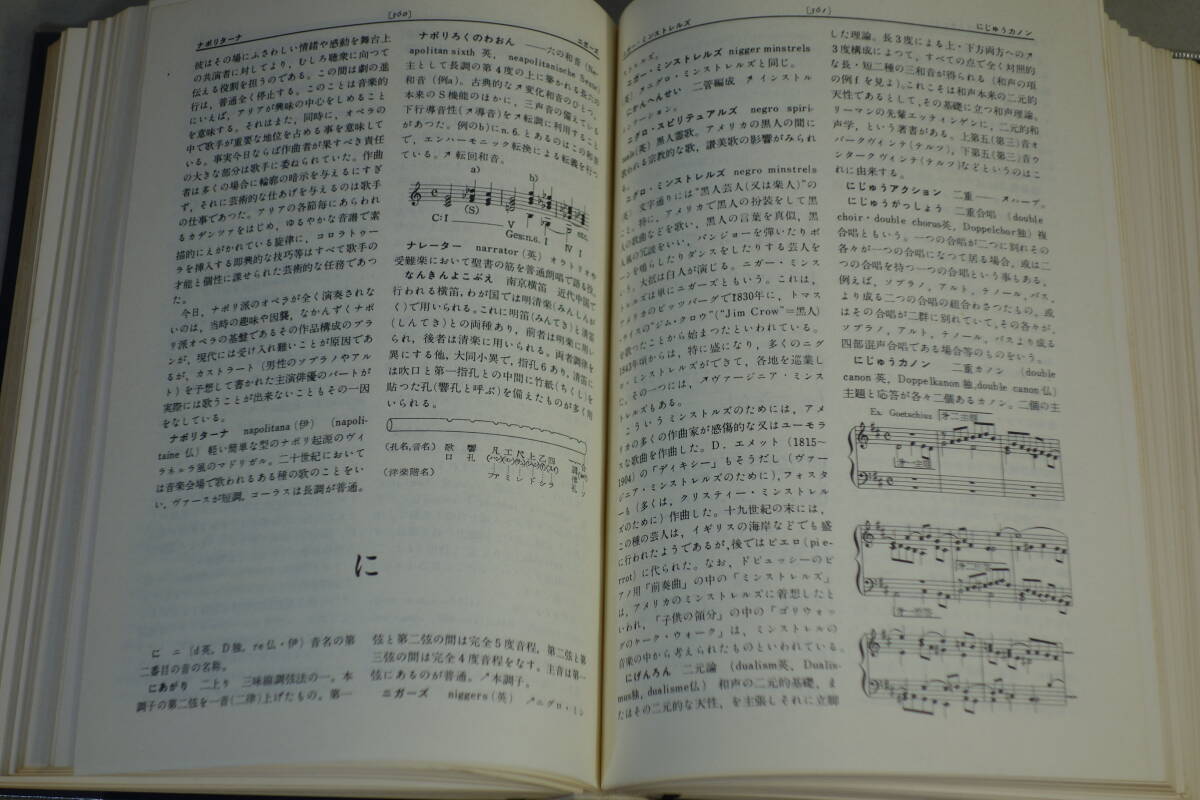 [360]
ナポリターナ
ニガーズ
彼はその場にふさわしい情緒や感動を舞台上
の共演者に対してより、むしろ聴衆に向つて
伝える役割を担うのである。この間は劇の進
行は、普通全く停止する。このことは音楽的
にいえば、アリアが興味の中心をしめること
を意味する。それはまた、同時に、オペラの
中で歌手が重要な地位を占める事を意味して
いる。事実今日ならば作曲者が果すべき責任
の大きな部分は歌手に委ねられていた。作曲
者は多くの場合に輪廓の暗示を与えるにすぎ
ず、それに芸術的な仕あげを与えるのは歌手
の仕事であつた。アリアの各節毎にあらわれ
るカデンツァをはじめ、ゆるやかな音譜で素
描的に えがかれている旋律に、コロラトゥー
ラを挿入する即興的な技巧等はすべて歌手の
才能と個性に課せられた芸術的な任務であつ
た。
今日、ナポリ派のオペラが全く演奏されな
いのは、当時の趣味や因襲、なかんずくナポ
リ派オペラの基盤であるその作品構成のプラ
ンが、現代には受け入れ難いことが原因であ
るが、カストラート (男性のソプラノやアル
ト) を予想して書かれた主演俳優のパートが
実際には歌うことが出来ないこともその一因
をなしている。
ナポリターナ napolitana (伊) (napoli-
taine 仏) 軽い簡単な型のナポリ起源のヴィ
ラネルラ風のマドリガル。二十世紀において
は音楽会場で歌われるある種の歌のことをい
い、ヴァースが短調、コーラスは長調が普通。
ナポリろくのわおん ——六の和音 (Nea-
apolitan sixth 英, neapolitanische Sexte)
主として長調の第4度の上に築かれる長六の
和音 (例a)。古典的な↗変化和音のひとつ。
本来のS機能のほかに、三声音の備えている
下行導音性(↗導音)を↗転調に利用すること
があつた。例のb)にn.6.とあるのはこの和音
で、エンハーモニック転換による転義を行つ
ている。↗転回和音。
a) b)
C:I (S) V I
Ges:n.6. IV
ナレーター narrator (英) オラトリオや
受難楽において聖書の筋を普通朗唱で語る役。
なんきんよこぶえ 南京横笛 近代中国で
行われる横笛, わが国では明清楽(みんしんが
く)で用いられる。これに明笛(みんてき)と清笛
(しんてき)との両種あり, 前者は明楽に用い
られ, 後者は清楽に用いられる。両者調律を
異にする他, 大同小異で, 指孔6あり, 清笛に
は吹口と第一指孔との中間に竹紙(ちくし)を
貼つた孔(響孔と呼ぶ)を備えたものが多く用
いられる。
(孔名,音名) 歌 響 凡 工 尺 上 乙 四
口 孔
(洋楽階名) ファ ミ レ ド シ ラ ソ
に
に ニ (d英, D独, re仏・伊) 音名の第
二番目の音の名称。
にあがり 二上り 三味線調弦法の一。本
調子の第二弦を一音(二律)上げたもの。第一
弦と第二弦の間は完全5度音程, 第二弦と第
三弦の間は完全4度音程をなす。主音は第一
弦にあるのが普通。↗本調子。
ニガーズ niggers (英) ↗ニグロ・ミン
[361]
ニガー・ミンストレルズ
にじゅうカノン
ストレルズ。
ニガー・ミンストレルズ nigger minstrels
英) ↗ニグロ・ミンストレルズと同じ。
にかんへんせい 二管編成 ↗インストル
メンテーション。
ニグロ・スピリテュアルズ negro spiri-
tuals (英) 黒人霊歌。アメリカの黒人の間に
歌われる宗教的な歌, 讃美歌の影響がみられ
る。
ニグロ・ミンストレルズ negro minstrels
(英) 文字通りには“黒人芸人(又は楽人)”の
こと。特に, アメリカで黒人の扮装をして黒
人の歌曲などを歌い, 黒人の言葉を真似, 黒
人風の冗談をいい, バンジョーを弾いたりボ
ーンを鳴らしたりダンスをしたりする芸人を
いう。大抵は白人が演じる。ニガー・ミンス
トレルズは単にニガーズともいう。これは,
アメリカのピッツバーグで1830年に, トマス
・ライスの“ジム・クロウ”(“Jim Crow”=黒人)
を歌つたことから始まつたといわれている。
1843年頃からは, 特に盛になり, 多くのニグ
ロ・ミンストレルズができて, 各地を巡業し
た。その一つには, ↗ヴァージニア・ミンス
トレルズもある。
こういうミンストレルズのためには, アメ
リカの多くの作曲家が感傷的な又はユーモラ
スな歌曲を作曲した。D. エメット (1815〜
1904) の「ディキシー」もそうだし (ヴァー
ジニア・ミンストレルズのために), フォスタ
ーも (多くは, クリスティー・ミンストレル
ズのために) 作曲した。十九世紀の末には,
この種の芸人は, イギリスの海岸などでも盛
に行われたようであるが, 後ではピエロ(pie-
rrot) に代られた。なお, ドビュッシーのピ
アノ用「前奏曲」の中の「ミンストレルズ」
は, アメリカのミンストレルズに着想したと
いわれ, 「子供の領分」の中の「ゴリウォッ
グのケーク・ウォーク」は, ミンストレルの
音楽の中から考えられたものといわれている。
にげんろん 二元論 (dualism英, Dualis-
mus独, dualisme仏) 和声の二元的基礎, ま
たはその二元的な天性, を主張しそれに立脚
した理論。長3度による上・下方両方への↗
3度構成によつて, すべての点で全く対照的
な長・短二種の三和音が得られる (和声の項
の例fを見よ)。これこそは和声本来の二元的
天性であるとして, その基礎に立つ和声理論。
リーマンの先輩エッティンゲンに, 二元的和
声学, という著書がある。上第五(第三)音オ
ーバークヴィンテ(テルツ), 下第五(第三)音ウ
ンタークヴィンテ(テルツ)などというのはこ
れに由来する。
にじゅうアクション 二重—— ↗ハープ。
にじゅうがっしょう 二重合唱 (double
choir・double chorus英, Doppelchor独) 複
合唱ともいう。一つの合唱が二つに別れその
各々が一つの合唱になつて居る場合, 或は二
つの合唱を持つ一つの合唱という事もある。
例えば, ソプラノ, アルト, テノール, バス,
より成る二つの合唱の組合わさつたもの。或
はその合唱が二群に別れていて, その各々が,
ソプラノ, アルト, テノール, バスより成る
四部混声合唱である場合等のものをいう。
にじゅうカノン 二重カノン (double
canon 英, Doppelkanon 独, double canon 仏)
主題と応答が各々二個あるカノン。二個の主
Ex. Goetschius
第二主題
第一主題